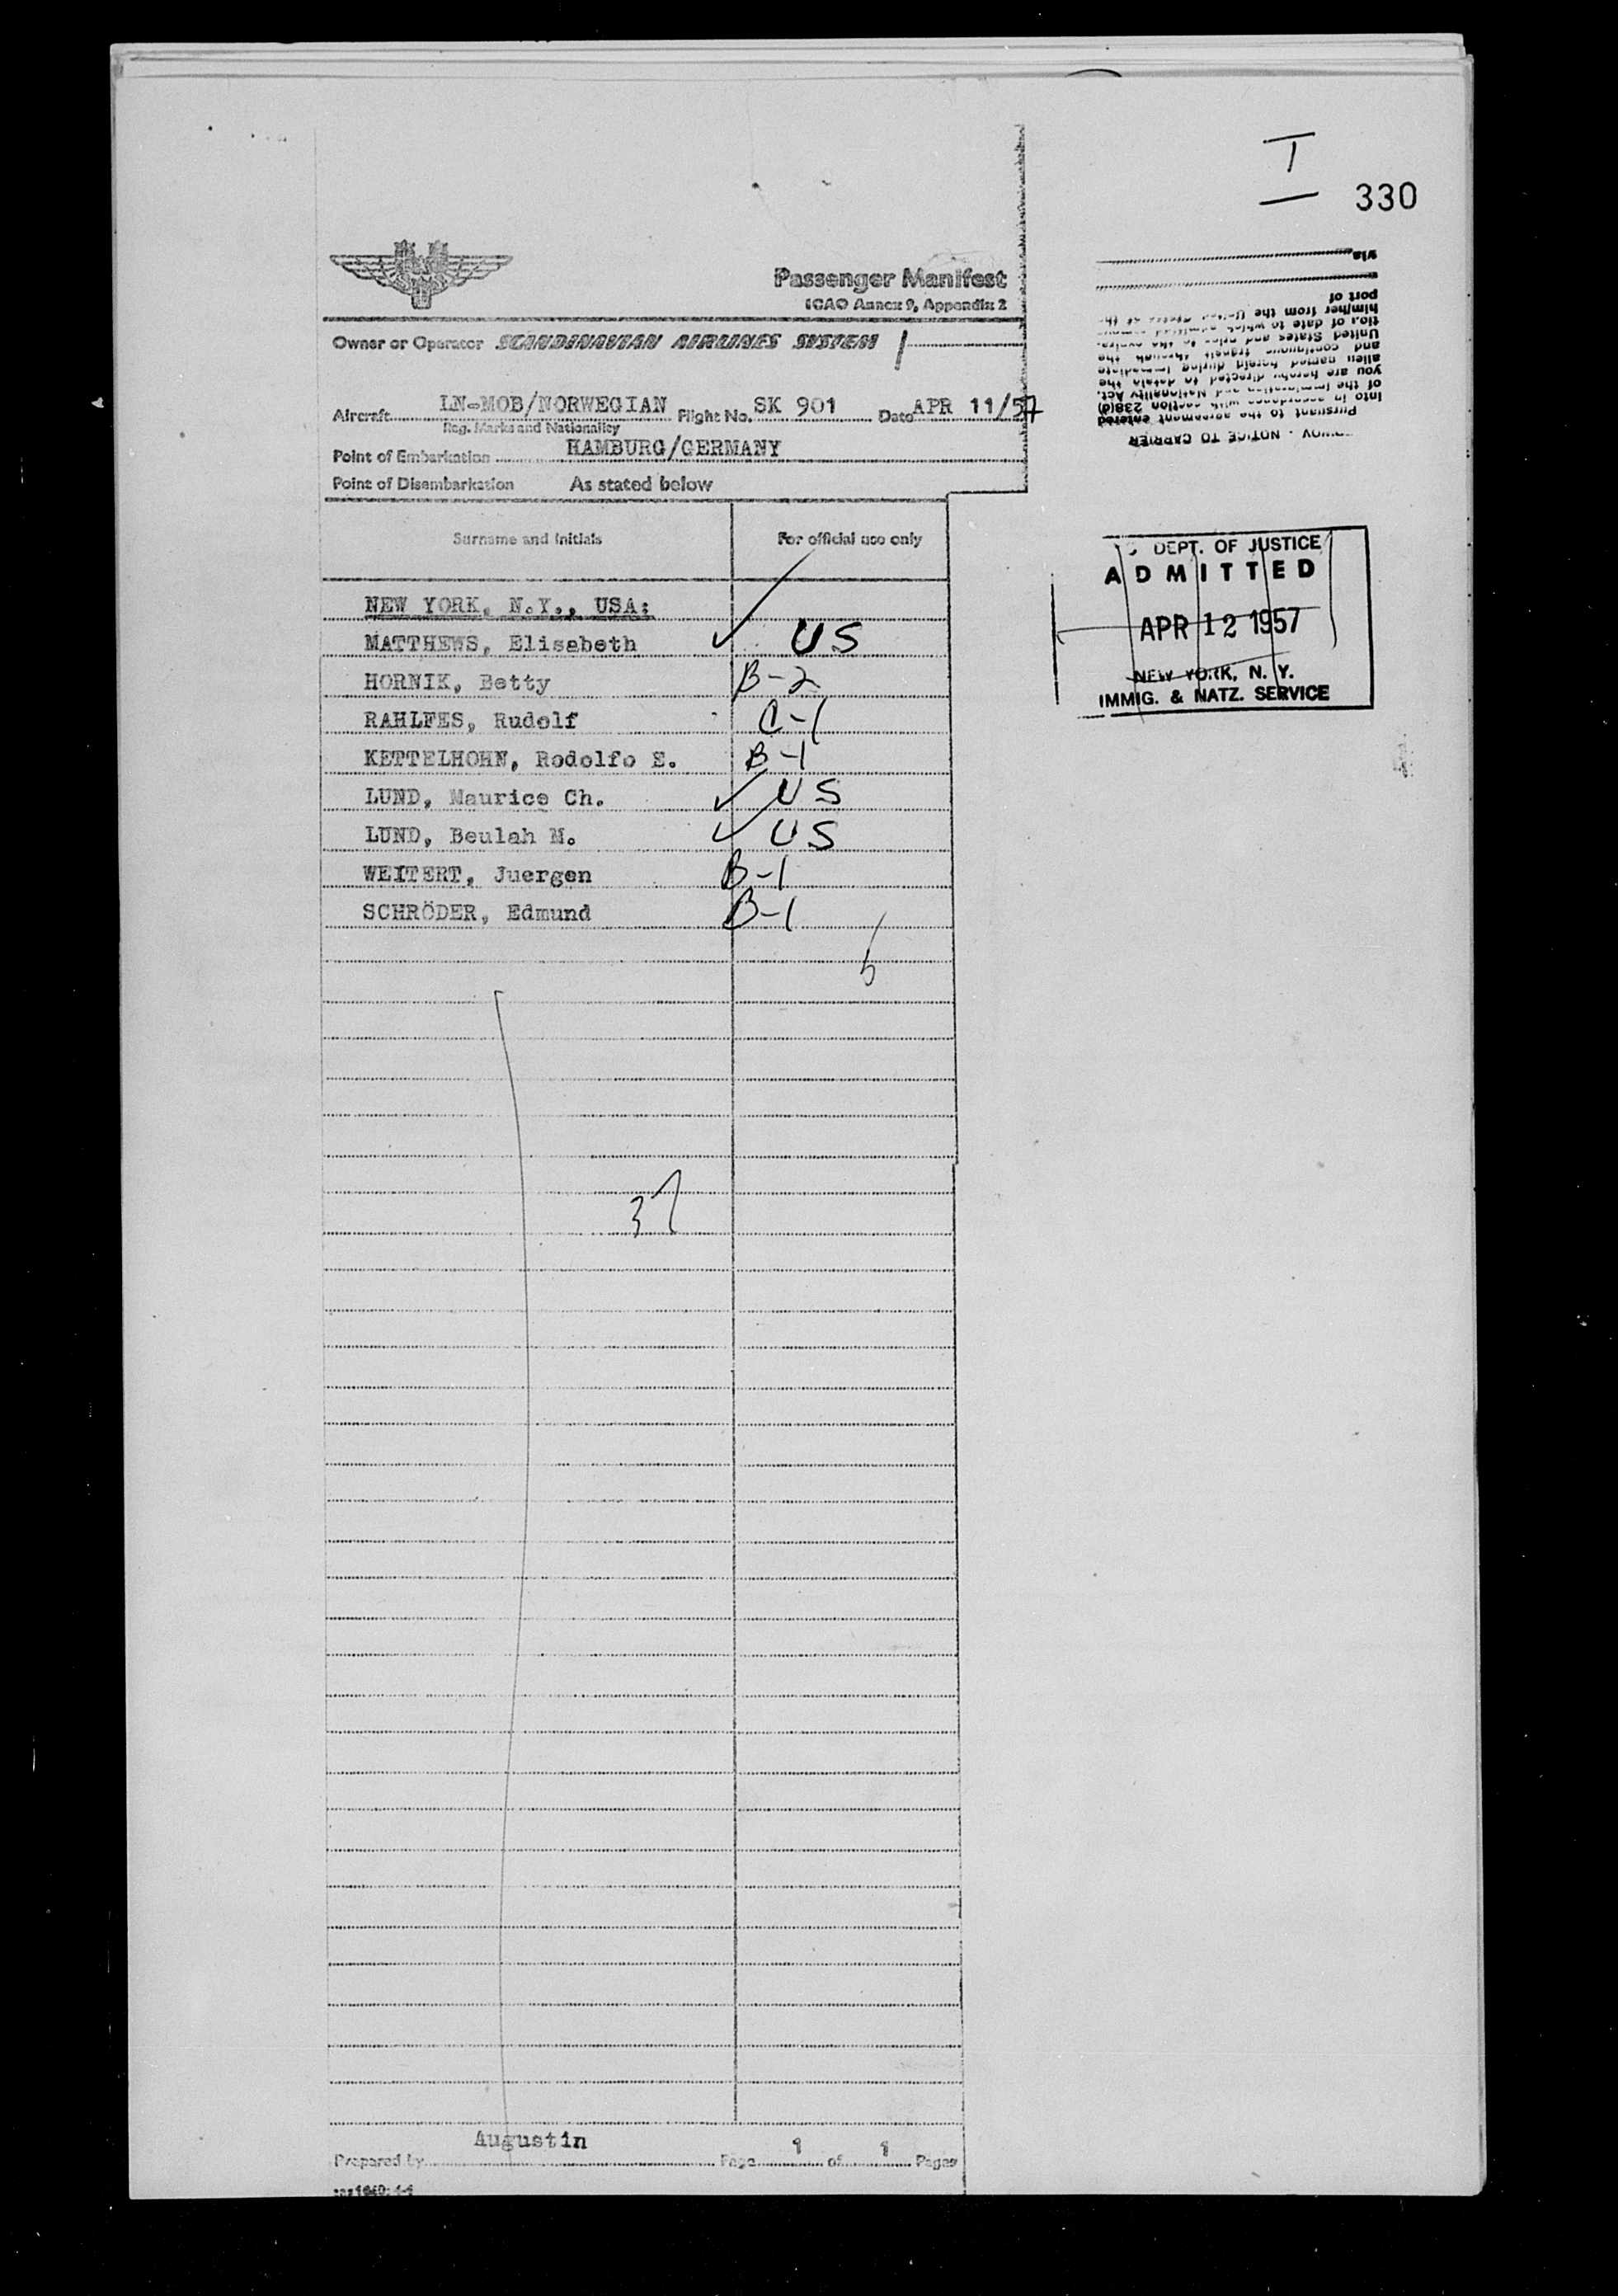 I
330
Passenger Manifest
ICAO Annex 9, Appendix 2
Owner or Operator SCANDINAVIAN AIRLINES SYSTEM
Aircraft LN-MOB/NORWEGIAN Flight No. SK 901 Date APR 11/57
Reg. Marks and Nationality
Point of Embarkation HAMBURG/GERMANY
Point of Disembarkation As stated below
Surname and initials For official use only
NEW YORK, N.Y., USA:
MATTHEWS, Elisabeth US
HORNIK, Betty B-2
RAHLFES, Rudolf C-1
KETTELHOHN, Rodolfo E. B-1
LUND, Maurice Ch. US
LUND, Beulah M. US
WEITERT, Juergen B-1
SCHRÖDER, Edmund B-1
37
Augustin
Prepared by Page 1 of 1 Pages
NOTICE TO CARRIER
Pursuant to the agreement entered
into in accordance with section 238(d)
of the Immigration and Nationality Act,
you are hereby directed to detain the
alien carried herein during immediate
and continuous transit through the
United States and prior to the
tion of date to which admitted
him/her from the United States
port of
via
DEPT. OF JUSTICE
ADMITTED
APR 12 1957
NEW YORK, N. Y.
IMMIG. & NATZ. SERVICE